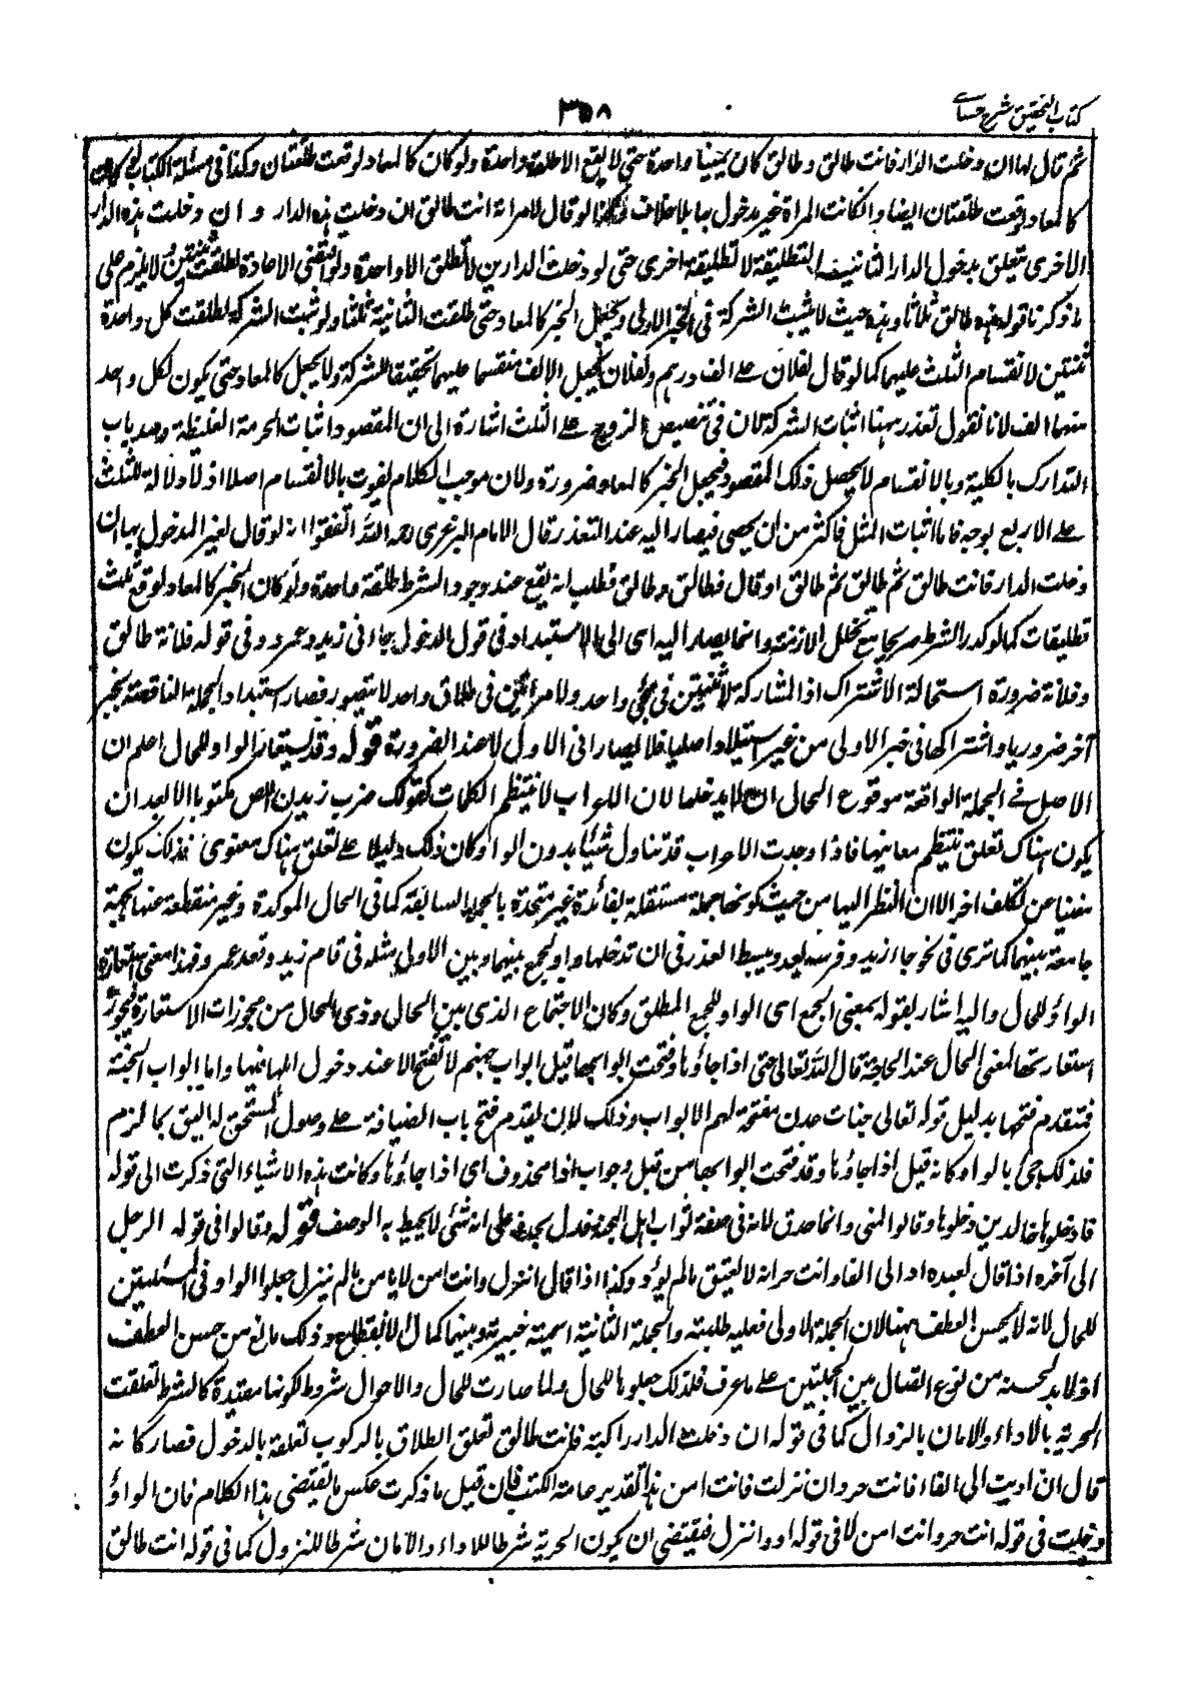 كتاب التحقيق شرح حسامي
٣٥٨
ثم قال لها ان دخلت الدار فانت طالق وطالق كان يمينا واحدة حتى لا يقع الا طلقة واحدة ولو كان كالمعاد لوقعت طلقتان وكذا فى مسئلة الكتاب لو كان
كالمعاد لوقعت طلقتان ايضا وان كانت المراة غير مدخول بها بلا خلاف وكذا لو قال لامراته انت طالق ان دخلت هذه الدار و ان دخلت هذه الدار
الاخرى يتعلق بدخول الدار الثانية تلك التطليقة لا تطليقة اخرى حتى لو دخلت الدارين لا تطلق الا واحدة ولو اقتضى الاعادة لطلقت ثنتين ولا يلزم على
ما ذكرنا قوله هذه طالق ثلاثا وهذه حيث لا يثبت الشركة فى الخبر الاول ويجعل الخبر كالمعاد حتى طلقت الثانية ثلثا ولو ثبت الشركة لطلقت كل واحدة
ثنتين لانقسام الثلث عليهما كما لو قال لفلان على الف درهم ولفلان يجعل الالف منقسما عليهما تحقيقا للشركة ولا يجعل كالمعاد حتى يكون لكل واحد
منهما الف لانا نقول تعذر ههنا اثبات الشركة لان فى تنصيص الزوج على الثلث اشارة الى ان المقصود اثبات الحرمة الغليظة وسد باب
التدارك بالكلية وبالانقسام لا يحصل ذلك المقصود فيجعل الخبر كالمعاد ضرورة ولان موجب الكلام يفوت بالانقسام اصلا اذ لا دلالة للثلث
على الاربع بوجه فاما اثبات المثل فاكثر من ان يحصى فيصار اليه عند التعذر قال الامام البرغرى رحمه الله اتفقوا انه لو قال لغير المدخول بها ان
دخلت الدار فانت طالق ثم طالق ثم طالق او قال فطالق وطالق فطلب انه يقع عند وجود الشرط طلقة واحدة ولو كان الخبر كالمعاد لوقع ثلث
تطليقات كما لو كرر الشرط صريحا مع تخلل الازمنة وانما يصار اليه اى الى الاستبداد فى قول الدخول جاءنى زيد وعمرو وفى قوله فلانة طالق
وفلانة ضرورة استحالة الاشتراك اذ المشاركة لاثنتين فى مجئ واحد ولامراتين فى طلاق واحد لا يتصور فصار استبداد الجملة الناقصة بخبر
آخر ضروريا واشتراكها فى خبر الاولى من غير استبداد اصليا فلا يصار الى الاول لا عند الضرورة قوله وقد يستعار الواو للحال اعلم ان
الاصل فى الجملة الواقعة موقوع الحال ان لا يدخلها لان الاعراب لا ينتظم الكلمات كقولك ضرب زيدن اللص مكتوبا الا بعد ان
يكون هناك تعلق ينتظم معانيها فاذا وجدت الاعراب قد تناول شيئا بدون الواو كان ذلك دليلا على تعلق هناك معنوى فذلك يكون
مغنيا عن تكلف اخر الا ان النظر اليها من حيث كونها جملة مستقلة بفائدة غير متحدة بالجملة السابقة كما فى الحال الموكدة وغير منقطعة عنها لجهة
جامعة بينهما كما ترى فى نحو جاء زيد وفرسه يعدو يبسط العذر فى ان تدخلها واو لجمع بينها وبين الاولى مثله فى قام زيد وقعد عمرو فهذا معنى استعارة
الواو للحال واليه اشار بقوله بمعنى الجمع اى الواو للجمع المطلق وكان الاجتماع الذى بين الحال وذى الحال من مجوزات الاستعارة فيجوز
استعارتها لمعنى الحال عند الحاجة قال الله تعالى حتى اذا جاؤها وفتحت ابوابها قيل ابواب جهنم لا تفتح الا عند دخول اهلها فيها واما ابواب الجنة
فيتقدم فتحها بدليل قوله تعالى جنات عدن مفتحة لهم الابواب وذلك لان يقدم فتح باب الضيافة على وصول المستحق له اليق بالكرم
فلذلك جئ بالواو كانه قيل اذا جاؤها وقد فتحت ابوابها من قبل وجواب اذا محذوف اى اذا جاؤها وكانت هذه الاشياء التى ذكرت الى قوله
فادخلوها خالدين دخلوها وقالوا المنى وانما حذف لانه فى صفة ثواب اهل الجنة فدل بحذفه على انه شئ لا يحيط به الوصف قوله وقالوا فى قوله الرجل
الى آخره اذا قال لعبده اد الى الفا وانت حر انه لا يعتق ما لم يؤد وكذا اذا قال انزل وانت امن لا يامن ما لم ينزل جعلوا الواو فى المسئلتين
للحال لانه لا يحسن العطف ههنا لان الجملة الاولى فعليه طلبية والجملة الثانية اسمية خبرية وبينهما كمال الانقطاع وذلك مانع من حسن العطف
اذ لا بد لحسنه من نوع اتصال بين الجملتين على ما عرف فلذلك جعلوها للحال ولما صارت للحال والاحوال شروط لكونها مقيدة كالشرط تعلقت
الحرية بالاداء والامان بالنزول كما فى قوله ان دخلت الدار راكبة فانت طالق تعلق الطلاق بالركوب تعلقه بالدخول فصار كانه
قال ان اديت الى الفا فانت حر وان نزلت فانت امن هذا تقدير عامة الكتب فان قيل ما ذكرت عكس ما يقتضى هذا الكلام فان الواو
دخلت فى قوله انت حر وانت امن لا فى قوله اد وانزل فيقتضى ان يكون الحرية شرطا للاداء والامان شرطا للنزول كما فى قوله انت طالق